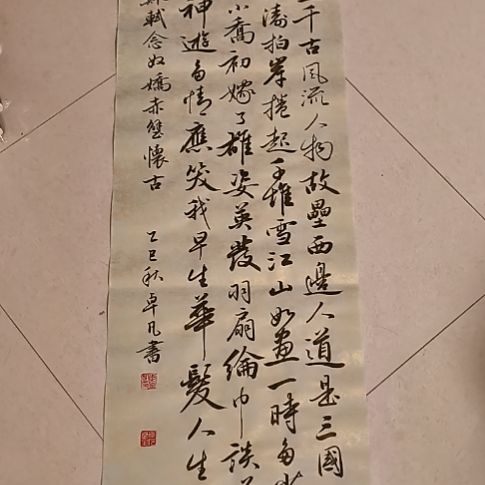 千古風流人物故壘西邊人道是三國
濤拍岸捲起千堆雪江山如畫一時多少
小喬初嫁了雄姿英發羽扇綸巾談
神遊多情應笑我早生華髮人生
軾念奴嬌赤壁懷古
乙巳秋卓凡書